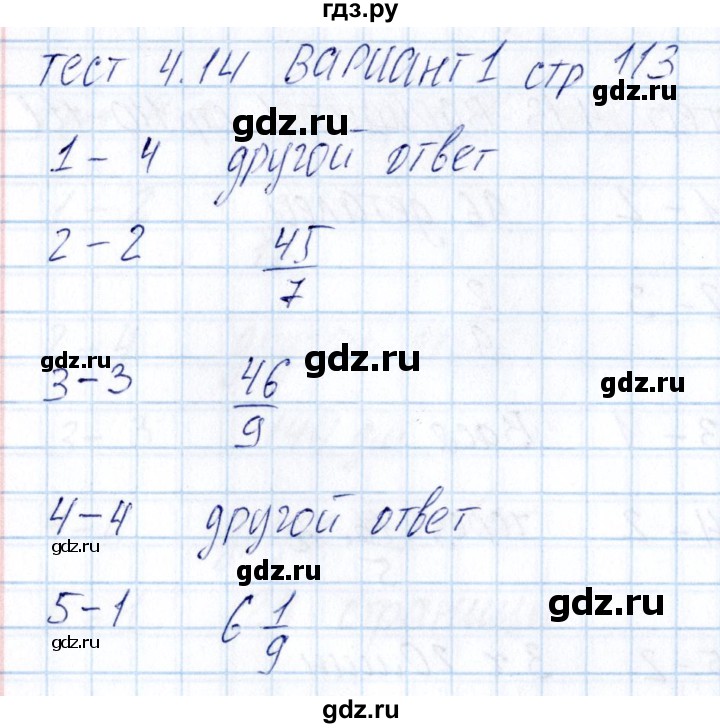 гдз.ру
тест 4.14 вариант 1 стр 113
gdz.ru
gdz.ru
1 - 4 другой ответ
2 - 2 45/7
gdz.ru
gdz.ru
gdz.ru
gdz.ru
3 - 3 46/9
4 - 4 другой ответ
gdz.ru
gdz.ru
gdz.ru
5 - 1 6 1/9
gdz.ru
gdz.ru